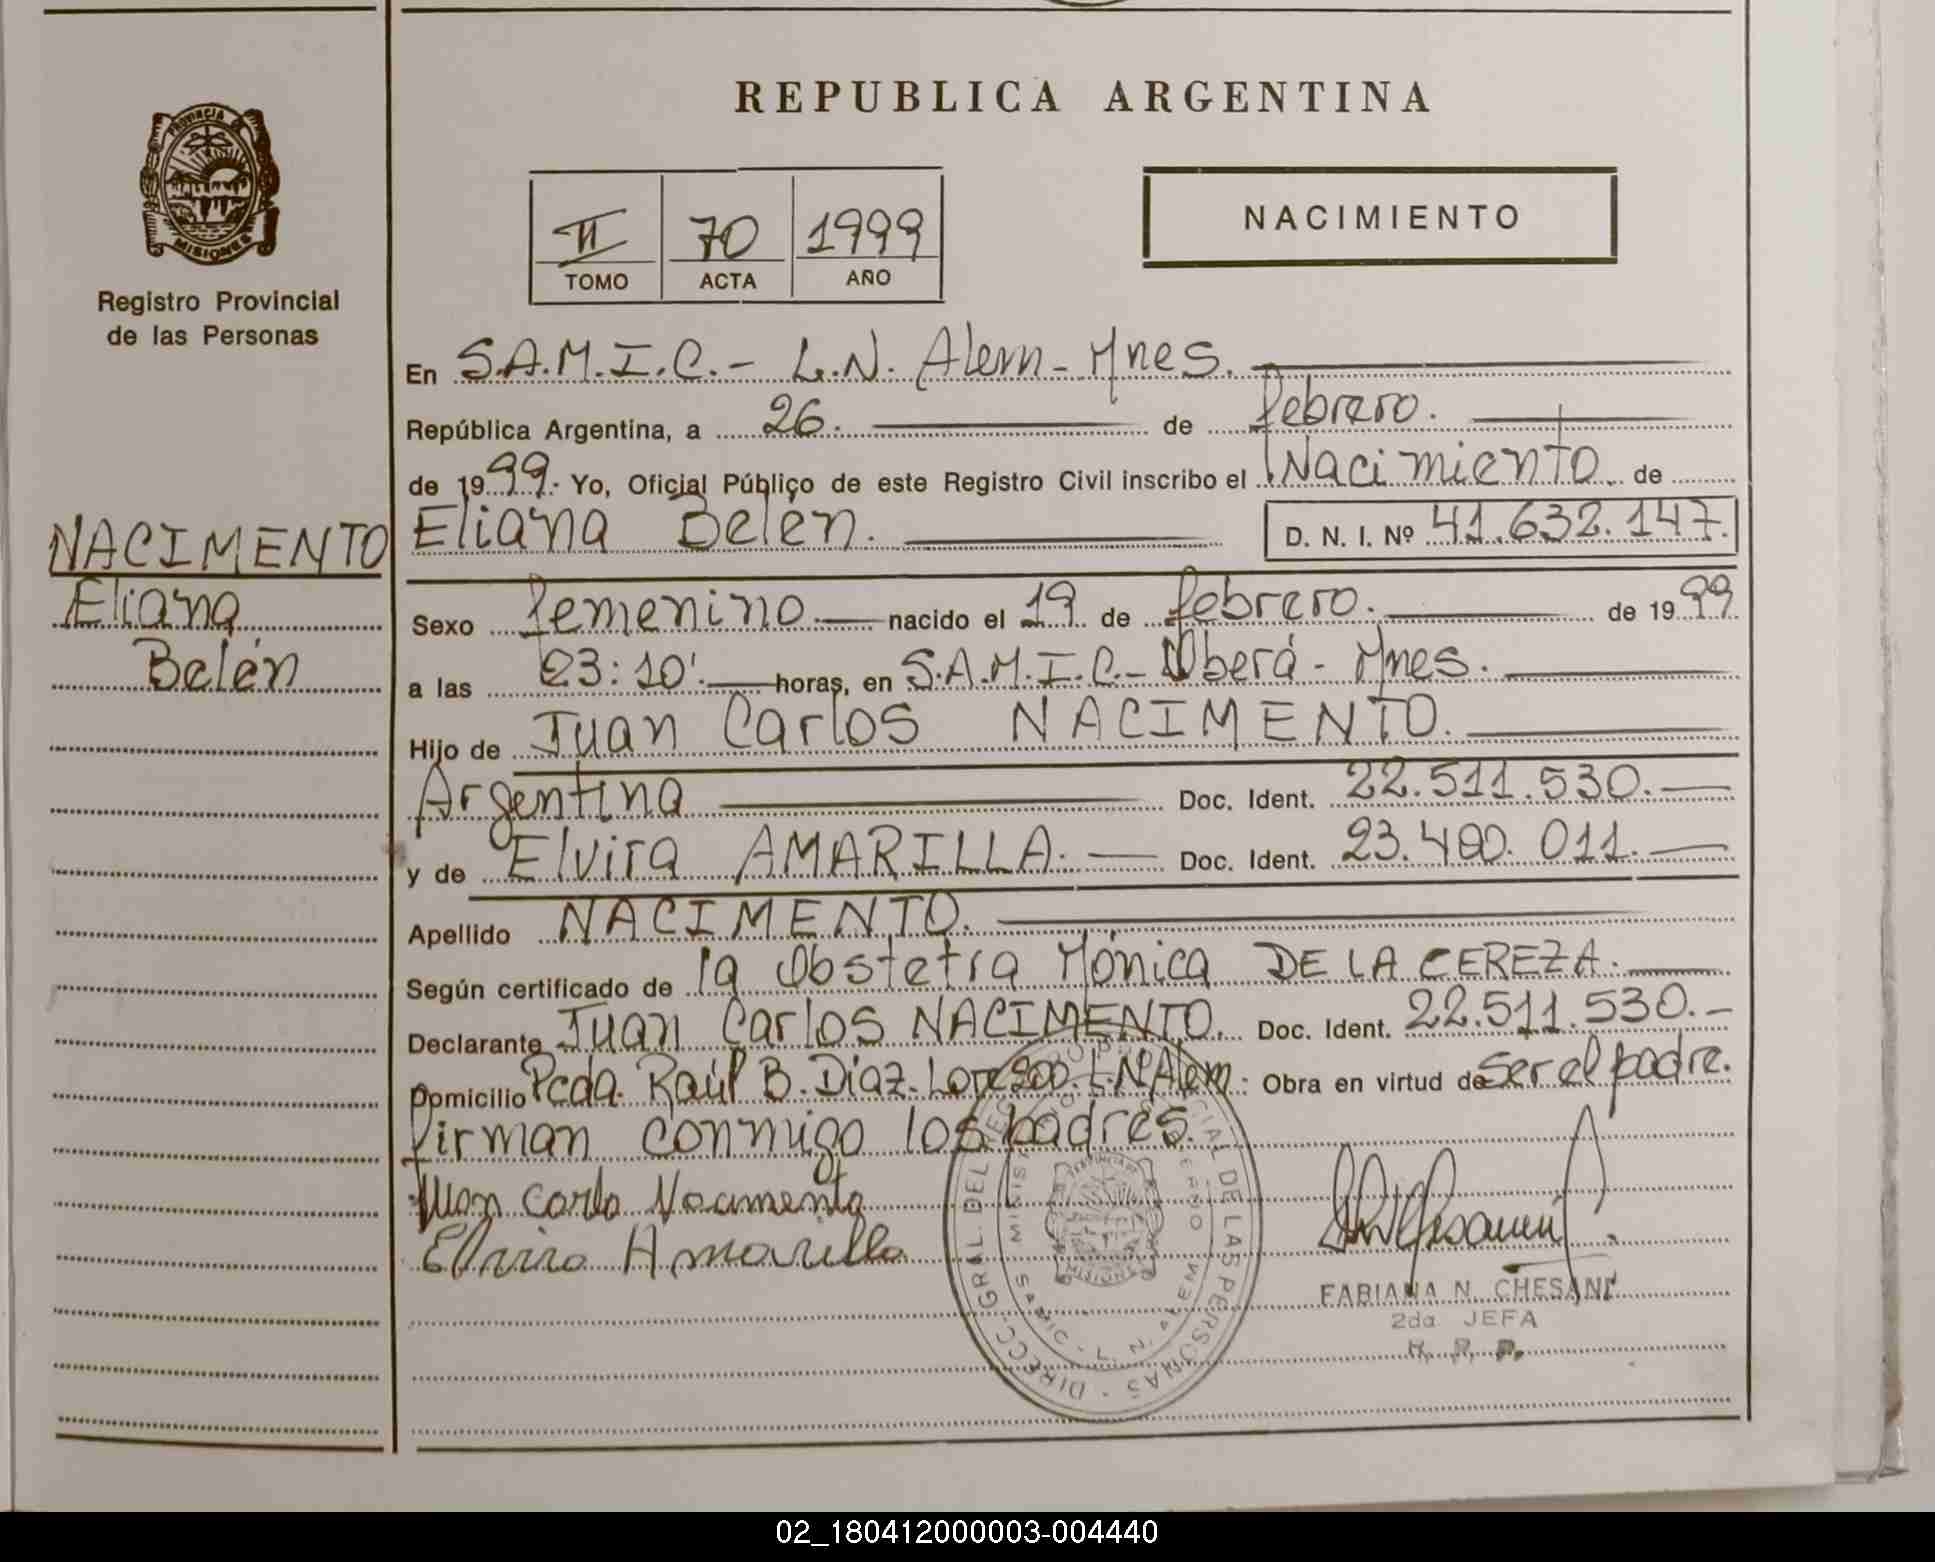 REPUBLICA ARGENTINA
PROVINCIA DE MISIONES
Registro Provincial
de las Personas
II 70 1999
TOMO ACTA AÑO
NACIMIENTO
NACIMENTO
Eliana
Belén
En S.A.M.I.C.- L.N. Alem- Mnes.
República Argentina, a 26. de febrero.
de 1999. Yo, Oficial Público de este Registro Civil inscribo el Nacimiento de
Eliana Belén. D. N. I. Nº 41.632.147.
Sexo femenino. nacido el 19 de febrero. de 1999
a las 23:10'. horas, en S.A.M.I.C.- Oberá - Mnes.
Hijo de Juan Carlos NACIMENTO.
Argentina Doc. Ident. 22.511.530.
y de Elvira AMARILLA. Doc. Ident. 23.400.011.
Apellido NACIMENTO.
Según certificado de la Obstetra Mónica DE LA CEREZA.
Declarante Juan Carlos NACIMENTO. Doc. Ident. 22.511.530.-
Domicilio Pcda. Raúl B. Diaz. L.N. Alem. Obra en virtud de ser el padre.
firman conmigo los padres.
Juan Carlo Nacimento
Elvira Amarilla
DIRECC. GRAL. DEL REG. PROVINCIAL DE LAS PERSONAS
SAMIC - L. N. ALEM
MISIONES
FABIANA N. CHESANI
2da JEFA
R. P. P.
02_180412000003-004440